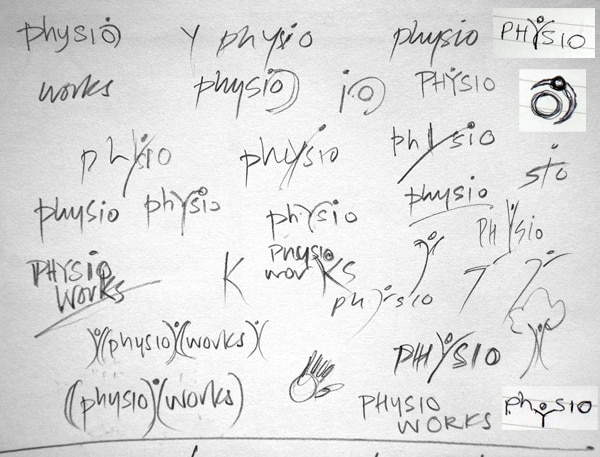 physio Y physio physio PHYSIO
works physio io PHYSIO
physio physio physio
sio
physio physio physio physio PHYSIO
PHYSIO WORKS K physio works
physio
physio)(works PHYSIO
(physio)(works) PHYSIO WORKS physio